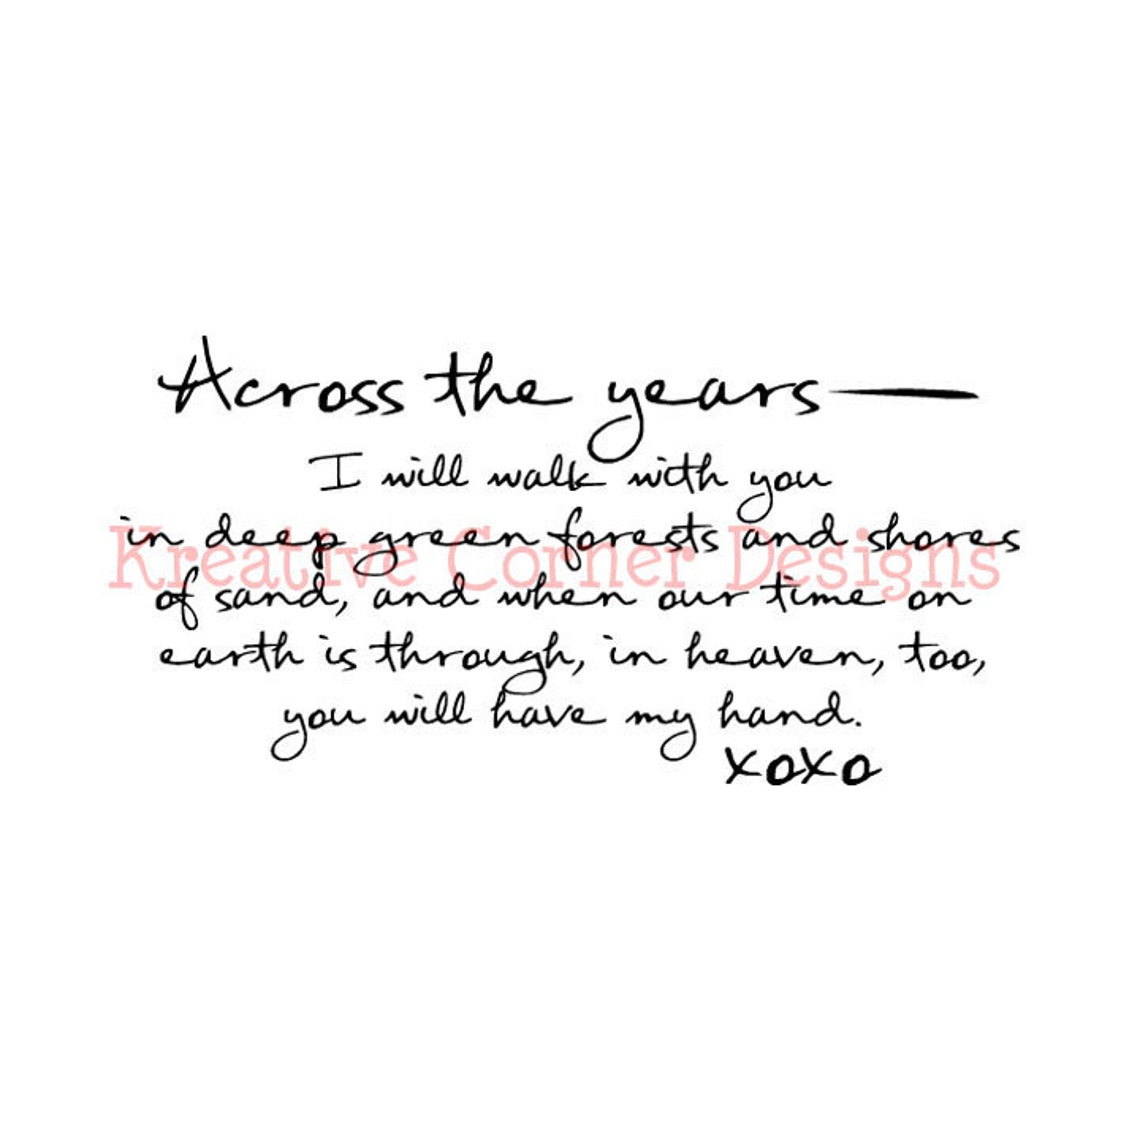 Across the years—
I will walk with you
in deep green forests and shores
Kreative Corner Designs
of sand, and when our time on
earth is through, in heaven, too,
you will have my hand.
xoxo